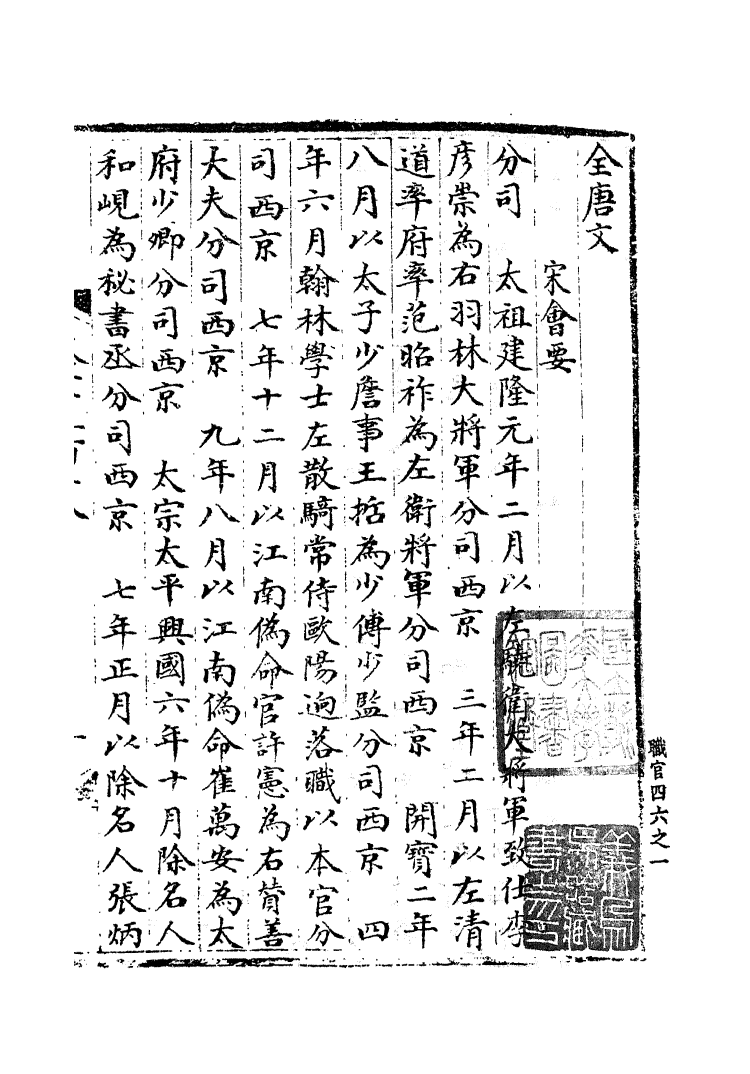 全唐文
宋會要
分司　太祖建隆元年二月以左驍衛大將軍致仕李
彥崇為右羽林大將軍分司西京　三年二月以左清
道率府率范昭祚為左衛將軍分司西京　開寶二年
八月以太子少詹事王括為少傅少監分司西京　四
年六月翰林學士左散騎常侍歐陽逈落職以本官分
司西京　七年十二月以江南偽命官許憲為右贊善
大夫分司西京　九年八月以江南偽命崔萬安為太
府少卿分司西京　太宗太平興國六年十月除名人
和峴為秘書丞分司西京　七年正月以除名人張炳
職官四六之一